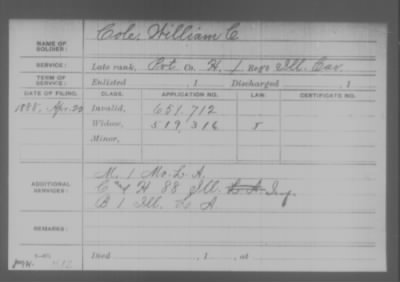 NAME OF SOLDIER: Cole, William C
SERVICE: Late rank, Pvt. Co. H, 1 Reg't Ill. Cav.
TERM OF SERVICE: Enlisted , 1 Discharged , 1
DATE OF FILING. CLASS. APPLICATION NO. LAW. CERTIFICATE NO.
1888, Apr. 20 Invalid, 651.712
Widow, 519,316
Minor,
M. 1 Mo. L. A.
ADDITIONAL SERVICES: H 88 Ill. Inf.
B 1 Ill. L A.
REMARKS:
Died , 1 , at